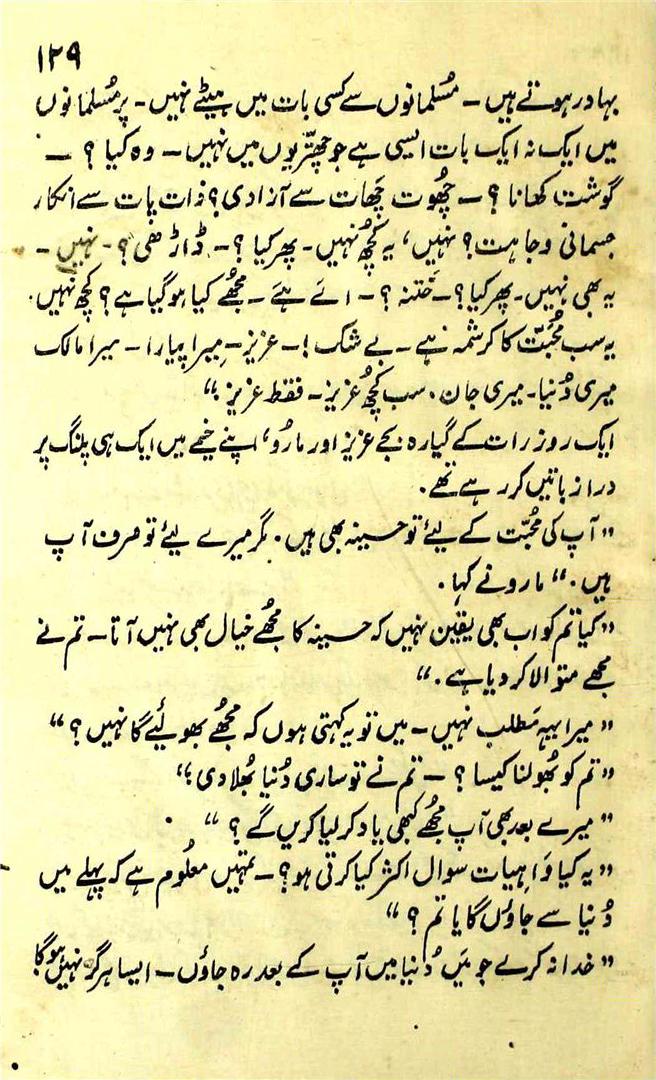 ۱۲۹
بہادر ہوتے ہیں - مُسلمانوں سے کسی بات میں ہیٹے نہیں - پر مُسلمانوں
میں ایک نہ ایک بات ایسی ہے جو چھتّریوں میں نہیں - وہ کیا ؟ -
گوشت کھانا ؟ - چھُوت چھات سے آزادی ؟ ذات پات سے انکار
جسمانی وجاہت ؟ نہیں، یہ کچھُ نہیں - پھر کیا ؟ - ڈاڑھی ؟ - نہیں -
یہ بھی نہیں - پھر کیا ؟ - خَتنہ ؟ - اَے ہَے - مجھُے کیا ہو گیا ہے ؟ کچھُ نہیں.
یہ سب مُحبّت کا کرشمہ ہے - بے شک ! - عزیز - میرا پیارا - میرا مالک
میری دُنیا - میری جان. سب کچھُ عزیز - فقط عزیز ؛“
ایک روز رات کے گیارہ بجے عزیز اور مارُو، اپنے خیمے میں ایک ہی پلنگ پر
دراز باتیں کر رہے تھے.
”آپ کی مُحبّت کے لیئے تو حسینہ بھی ہیں. مگر میرے لیئے تو صرف آپ
ہیں.“ مارو نے کہا.
”کیا تم کو اب بھی یقین نہیں کہ حسینہ کا مجھُے خیال بھی نہیں آتا - تم نے
مجھُے متوالا کر دیا ہے.“
”میرا یہہ مَطلب نہیں - میں تو یہ کہتی ہوں کہ مجھُے بھولیئے گا نہیں ؟“
”تم کو بھُولنا کیسا ؟ - تم نے تو ساری دُنیا بھُلا دی ؛“
”میرے بعد بھی آپ مجھُے کبھی یاد کر لیا کریں گے ؟“
”یہ کیا وَاہیات سوال اکثر کیا کرتی ہو ؟ - تمہیں معلُوم ہے کہ پہلے میں
دُنیا سے جاؤں گا یا تم ؟“
”خدا نہ کرے جو مَیں دُنیا میں آپ کے بعد رہ جاؤں - ایسا ہرگز نہیں ہوگا